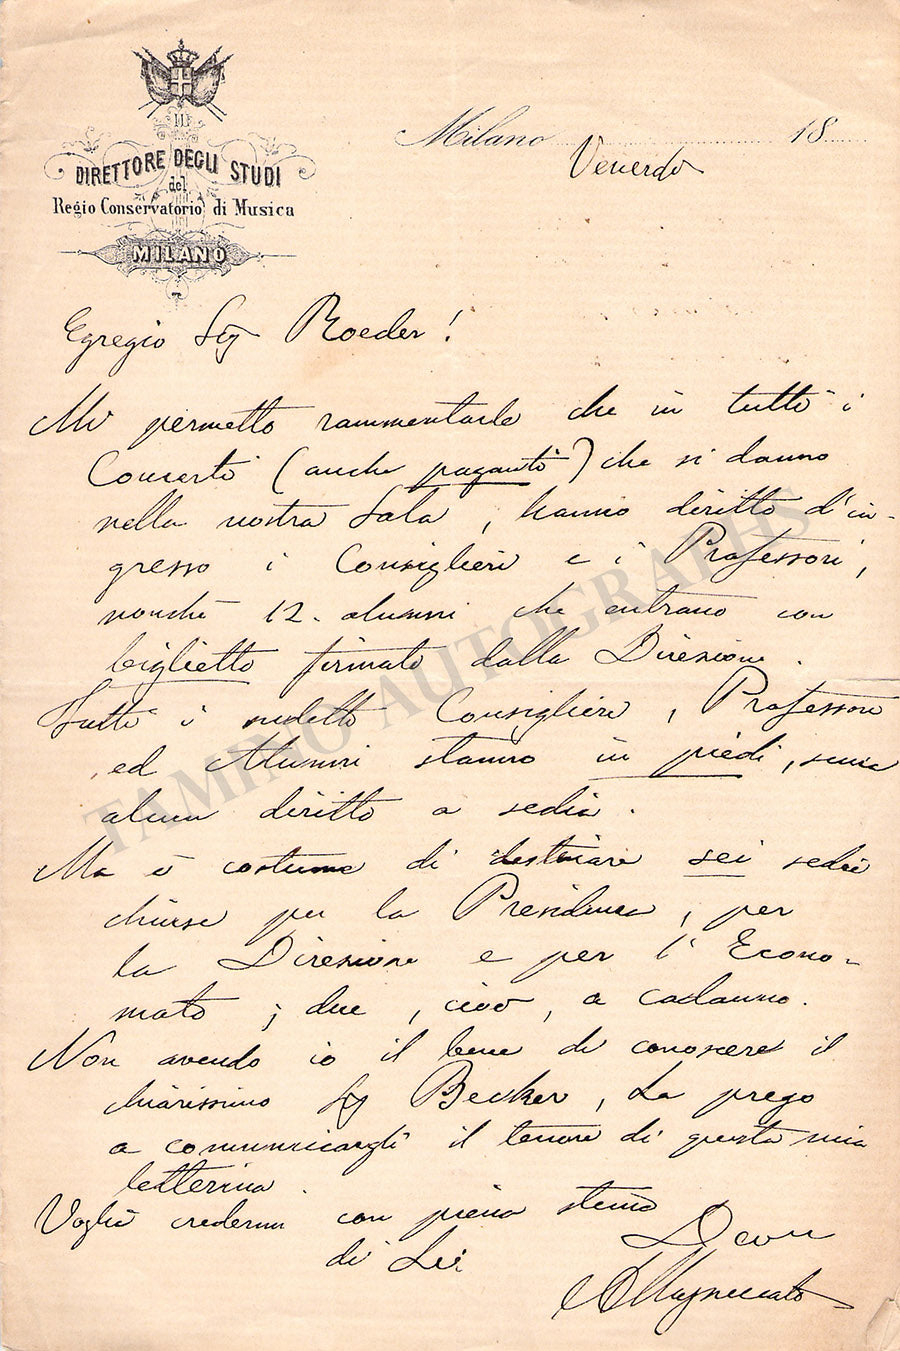 IL
DIRETTORE DEGLI STUDI
del
Regio Conservatorio di Musica
MILANO
Milano 18
Venerdì
Egregio Sig Roeder!
Mi permetto rammentarle che in tutti i
Concerti (anche paganti) che si danno
nella nostra Sala, hanno diritto d'in-
gresso i Consiglieri e i Professori,
nonchè 12. alunni che entrano con
biglietto firmato dalla Direzione.
Tutti i sudetti Consiglieri, Professori
ed Alunni stanno in piedi, senza
alcun diritto a sedia.
Ma è costume di destinare sei sedie
chiuse per la Presidenza, per
la Direzione e per l'Econo-
mato; due, cioè, a cadauno.
Non avendo io il bene di conoscere il
chiarissimo Sig Becker, La prego
a comunicargli il tenore di questa mia
letterina.
Voglia credermi con piena stima
di Lei Devmo
AMazzucato
TAMINO AUTOGRAPHS